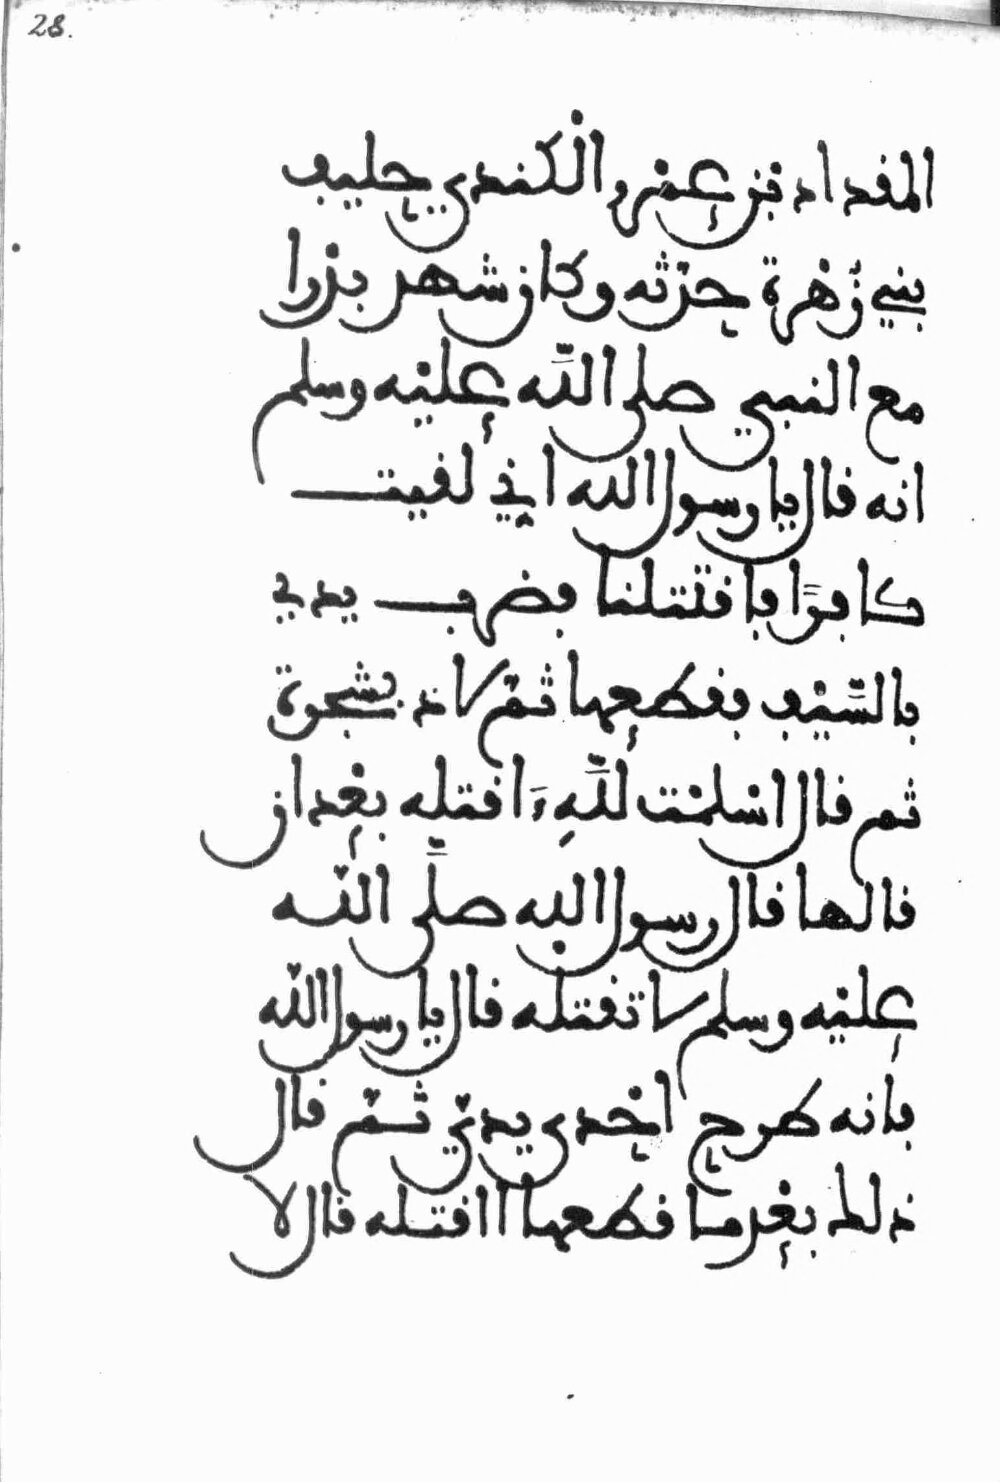 28.
المقداد بن عمرو الكندي حليف
بني زهرة حدثه وكان شهد بدرا
مع النبي صلى الله عليه وسلم
انه قال يا رسول الله اني لقيت
كافرا فاقتتلنا فضرب يدي
بالسيف فقطعها ثم لاذ بشجرة
ثم قال اسلمت لله ءاقتله بعد ان
قالها قال رسول الله صلى الله
عليه وسلم لا تقتله قال يا رسول الله
فانه طرح احدى يدي ثم قال
ذلك بعد ما قطعها ااقتله قال لا